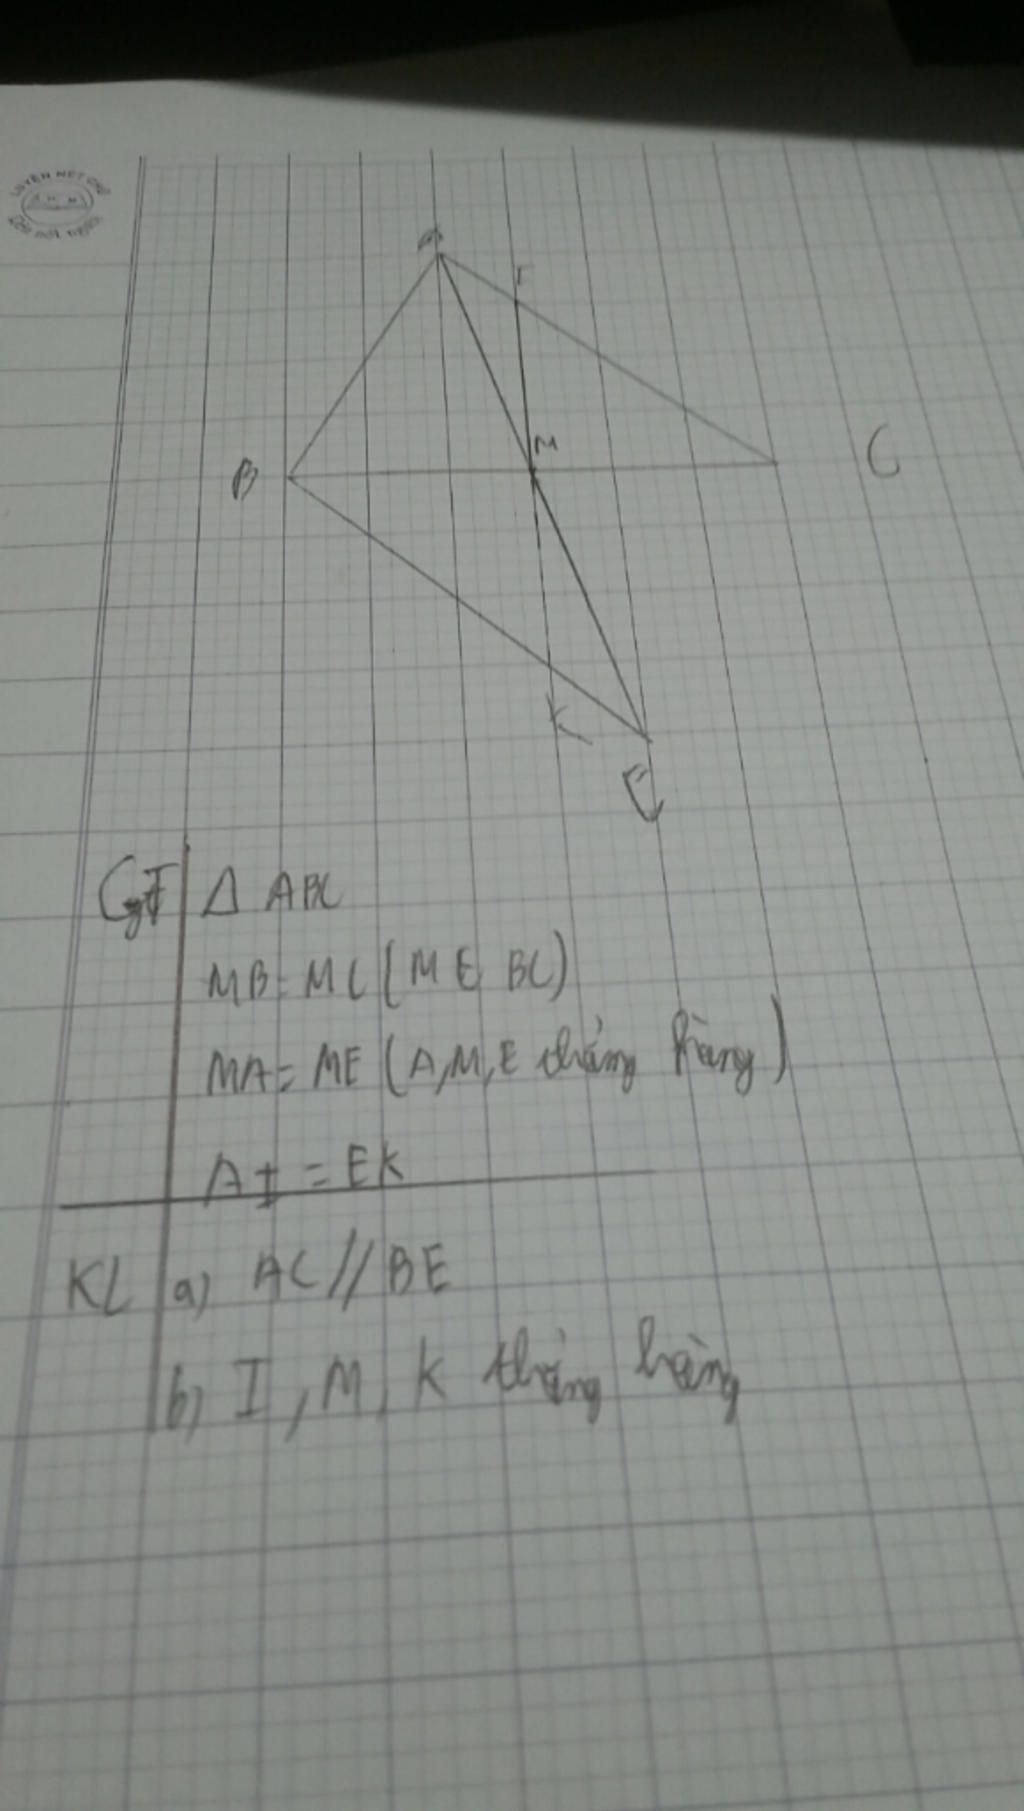 A
I
M
B
C
K
E
GT Δ ABC
MB = MC (M ∈ BC)
MA = ME (A, M, E thẳng hàng)
AI = EK
KL a) AC // BE
b) I, M, K thẳng hàng